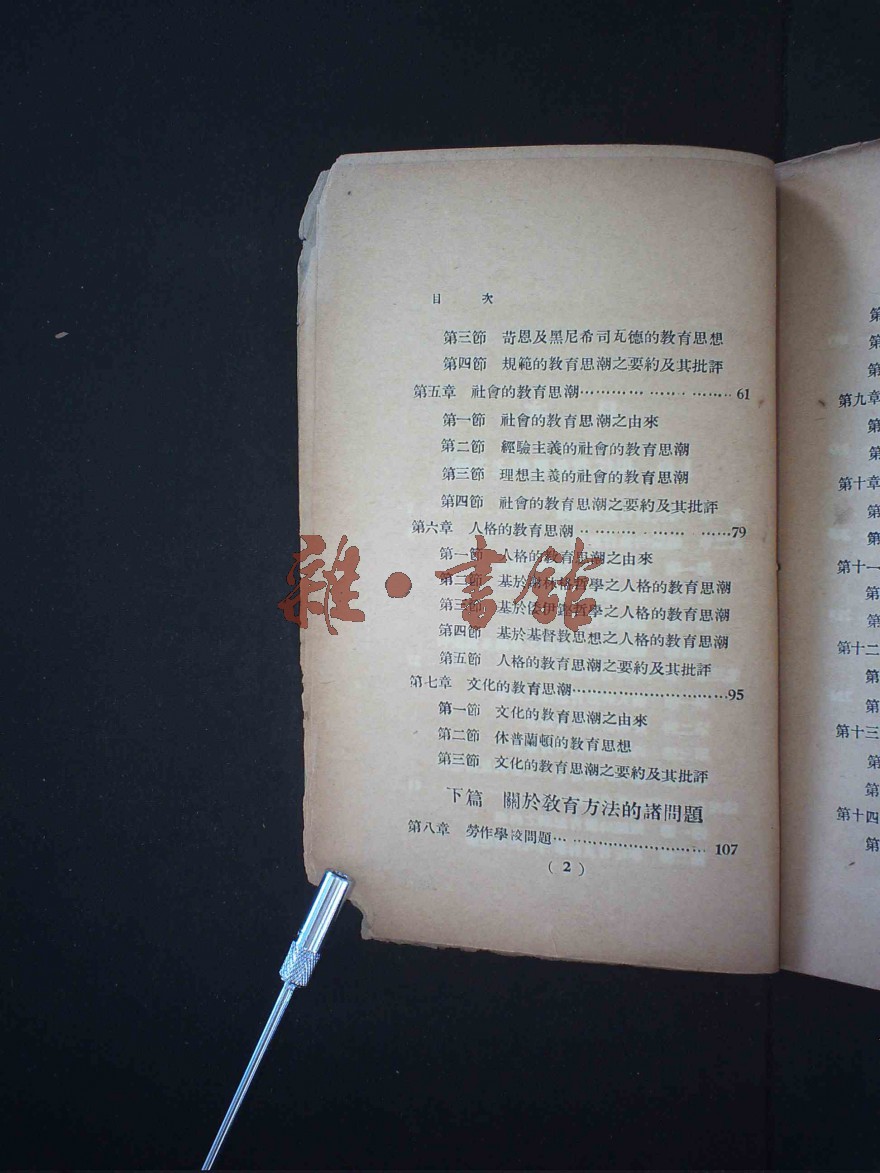 目 次
第三節 苛恩及黑尼希司瓦德的教育思想
第四節 規範的教育思潮之要約及其批評
第五章 社會的教育思潮………………………61
第一節 社會的教育思潮之由來
第二節 經驗主義的社會的教育思潮
第三節 理想主義的社會的教育思潮
第四節 社會的教育思潮之要約及其批評
第六章 人格的教育思潮………………………79
第一節 人格的教育思潮之由來
第二節 基於謝林格哲學之人格的教育思潮
第三節 基於倭伊鏗哲學之人格的教育思潮
第四節 基於基督教思想之人格的教育思潮
第五節 人格的教育思潮之要約及其批評
第七章 文化的教育思潮………………………95
第一節 文化的教育思潮之由來
第二節 休普蘭頓的教育思想
第三節 文化的教育思潮之要約及其批評
下篇 關於教育方法的諸問題
第八章 勞作學校問題………………………107
(2)
雜·書館
第
第
第
第九章
第
第
第十章
第
第
第十一
第
第
第十二
第
第
第十三
第
第
第十四
第